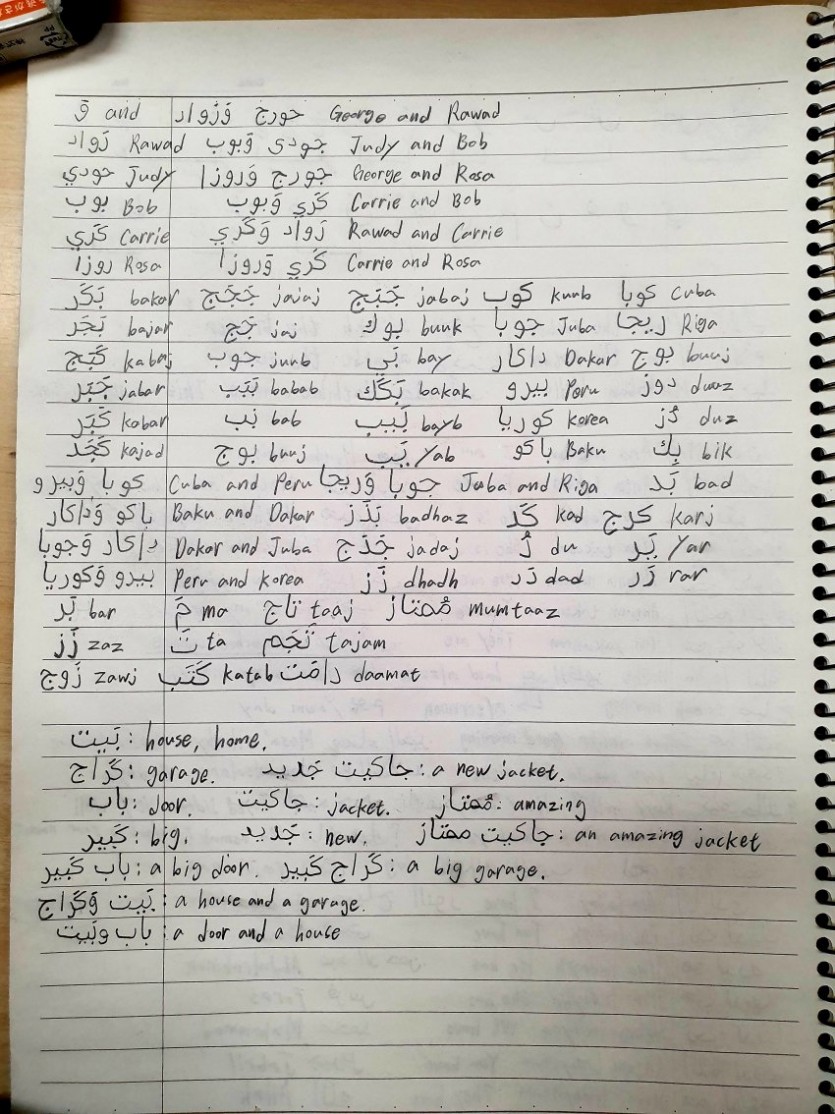 وَ and جورج وَرَواد George and Rawad
رَواد Rawad جودي وَبوب Judy and Bob
جودي Judy جورج وَروزا George and Rosa
بوب Bob كَري وَبوب Carrie and Bob
كَري Carrie رَواد وَكَري Rawad and Carrie
روزا Rosa كَري وَروزا Carrie and Rosa
بَكَر bakar جَجَج jajaj جَبَج jabaj كوب kuub كوبا Cuba
بَجَر bajar جَج jaj بوك buuk جوبا Juba ريجا Riga
كَبَج kabaj جوب juub بَي bay داكار Dakar بوج buuj
جَبَر jabar بَبَب babab بَكَك bakak بيرو Peru دوز duuz
كَبَر kabar بَب bab بَيب bayb كوريا Korea دُز duz
كَجَد kajad بوج buuj يَب yab باكو Baku بِك bik
كوبا وَبيرو Cuba and Peru جوبا وَريجا Juba and Riga بَد bad
باكو وَداكار Baku and Dakar بَذَز badhaz كَد kad كرج karj
داكار وَجوبا Dakar and Juba جَدَج jadaj دُ du يَر yar
بيرو وَكوريا Peru and Korea ذَز dhadh دَد dad رَر rar
بَر bar مَ ma تاج taaj مُمتاز mumtaaz
زَز zaz تَ ta تَجَم tajam
زَوج zawj كَتَب katab دامَت daamat
بَيت: house, home.
كَراج: garage. جاكيت جَديد: a new jacket.
باب: door. جاكيت: jacket. مُمتاز: amazing
كَبير: big. جَديد: new. جاكيت ممتاز: an amazing jacket
باب كَبير: a big door. كَراج كَبير: a big garage.
بَيت وَكَراج: a house and a garage.
باب وبَيت: a door and a house